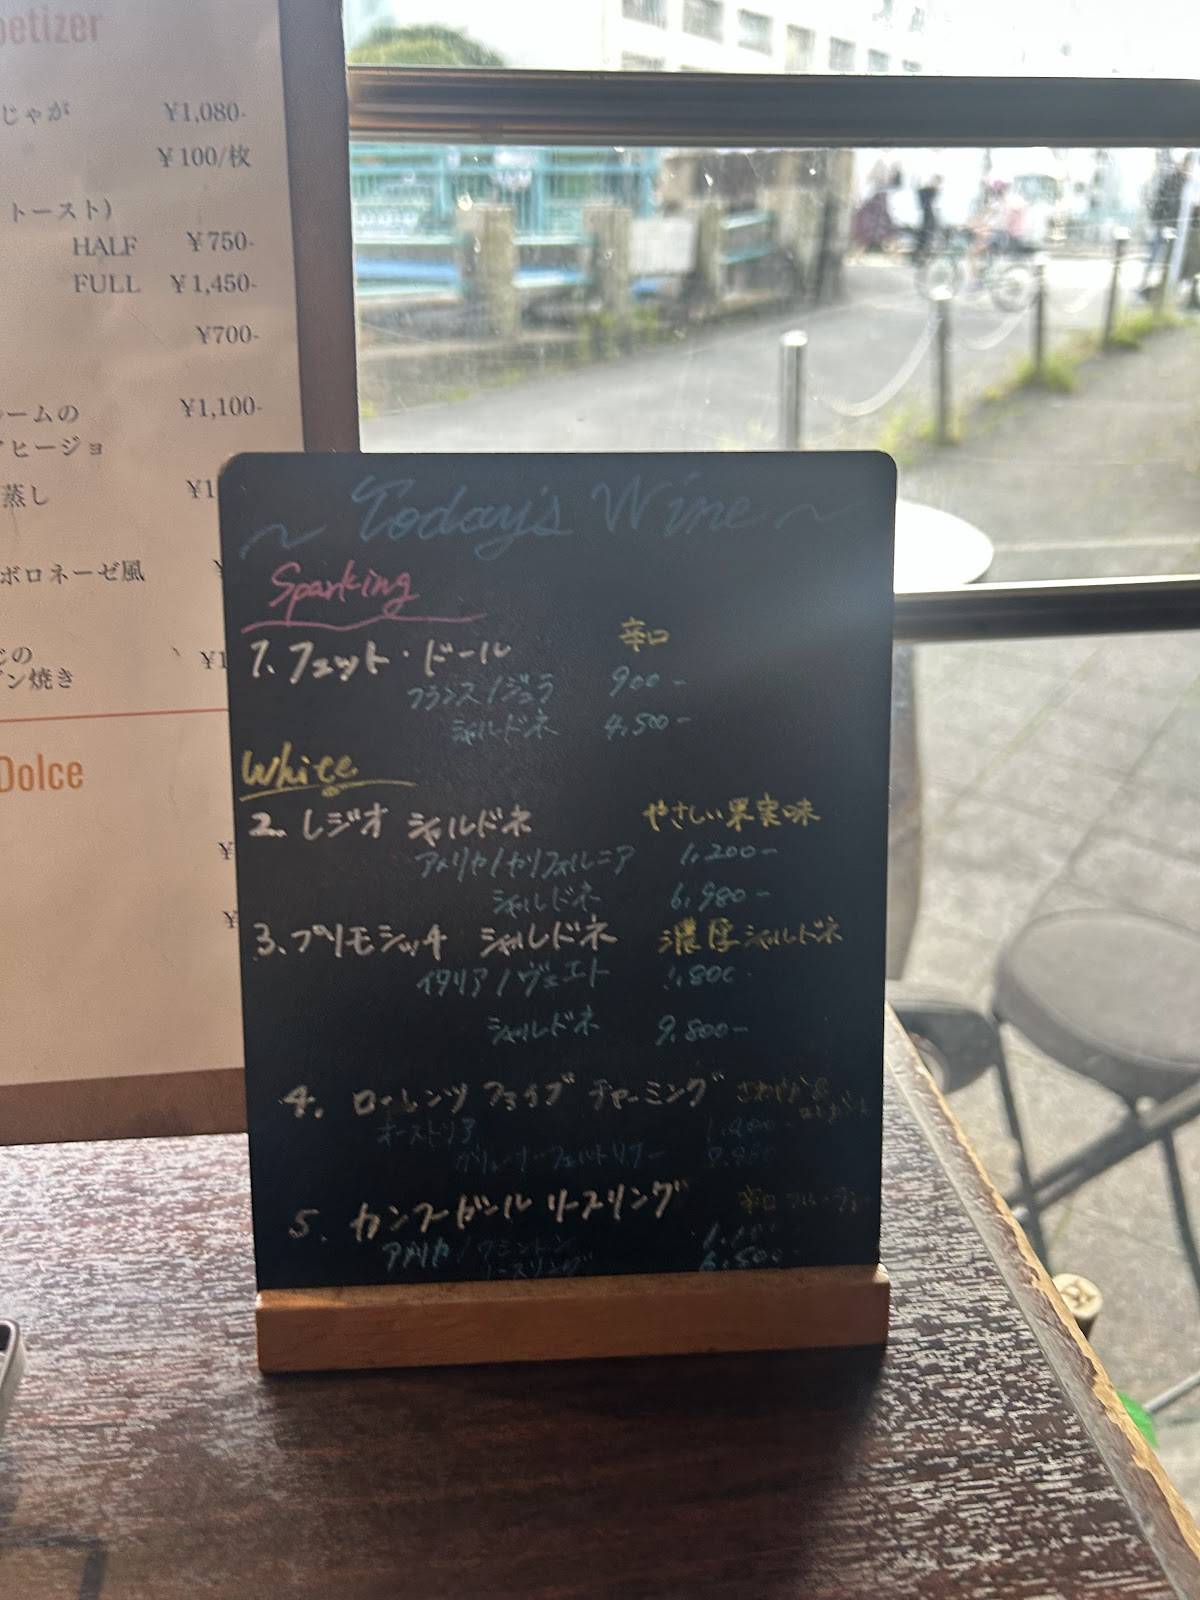 petizer
じゃが ¥1,080-
¥100/枚
トースト)
HALF ¥750-
FULL ¥1,450-
¥700-
ームの ¥1,100-
ヒージョ
蒸し ¥1
ボロネーゼ風 ¥
じの ¥1
ン焼き
Dolce
¥
¥
~ Today's Wine ~
Sparking
1. フェット・ドール 辛口
フランス/ジュラ 900-
シャルドネ 4,500-
White
2. レジオ シャルドネ やさしい果実味
アメリカ/カリフォルニア 1,200-
シャルドネ 6,980-
3. プリモシッチ シャルドネ 濃厚シャルドネ
イタリア/ヴェネト 1,800-
シャルドネ 9,800-
4. ローレンツ ファイブ チャーミング さわやか&
オーストリア
グリューナーフェルトリナー
5. カンフーガール リースリング 辛口 フルーティー
アメリカ/ワシントン
リースリング 6,800-